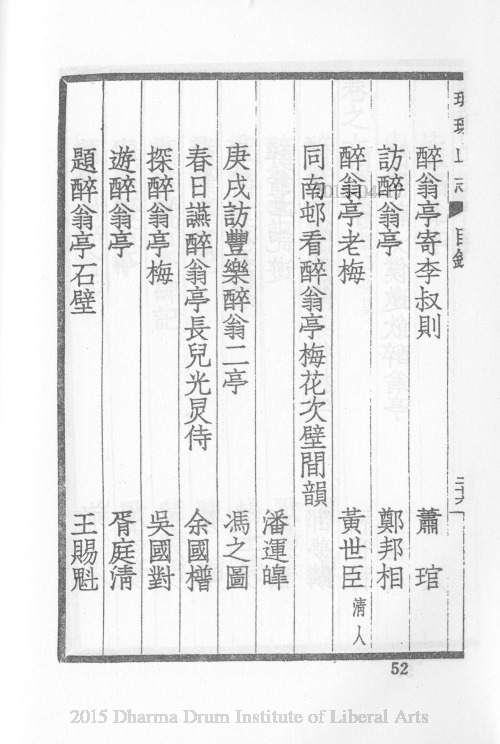 琅琊山志 目錄
醉翁亭寄李叔則 蕭琯
訪醉翁亭 鄭邦相
醉翁亭老梅 黃世臣 清人
同南邨看醉翁亭梅花次壁間韻
潘運皥
庚戌訪豐樂醉翁二亭 馮之圖
春日讌醉翁亭長兒光炅侍 余國㯋
探醉翁亭梅 吳國對
遊醉翁亭 胥庭清
題醉翁亭石壁 王賜魁
52
2015 Dharma Drum Institute of Liberal Arts